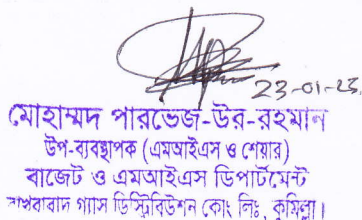 23-01-23
মোহাম্মদ পারভেজ-উর-রহমান
উপ-ব্যবস্থাপক (এমআইএস ও শেয়ার)
বাজেট ও এমআইএস ডিপার্টমেন্ট
বাখরাবাদ গ্যাস ডিস্ট্রিবিউশন কোং লিঃ, কুমিল্লা।